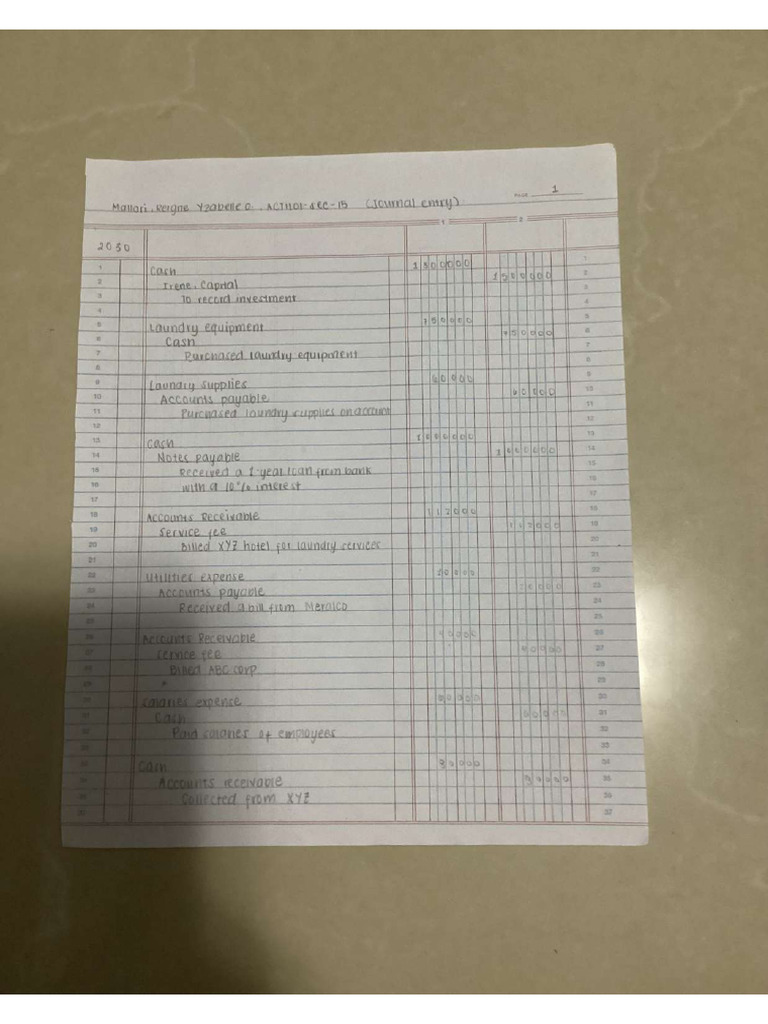 PAGE 1
Mallari, Reigne Yzabelle O. ACTNO1-sec-15 (Journal entry)
1 2
2030
1 Cash 1500000 1
2 Irene, Capital 1500000 2
3 To record investment 3
4 4
5 Laundry equipment 750000 5
6 Cash 750000 6
7 Purchased laundry equipment 7
8 8
9 Laundry supplies 60000 9
10 Accounts payable 60000 10
11 Purchased laundry supplies on account 11
12 12
13 Cash 1000000 13
14 Notes payable 1000000 14
15 Received a 1-year loan from bank 15
16 with a 10% interest 16
17 17
18 Accounts Receivable 112000 18
19 Service fee 112000 19
20 Billed XYZ hotel for laundry services 20
21 21
22 Utilities expense 22
23 Accounts payable 23
24 Received a bill from Meralco 24
25 25
26 Accounts Receivable 26
27 Service fee 27
28 Billed ABC corp 28
29 29
30 Salaries expense 30
31 Cash 31
32 Paid salaries of employees 32
33 33
Cash 34
Accounts receivable 35
Collected from XYZ 36
37